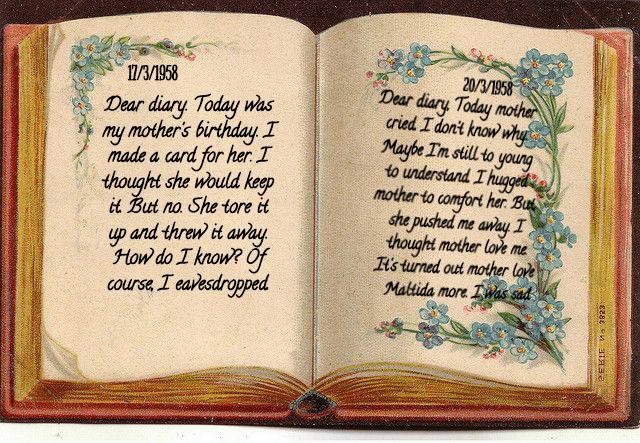 17/3/1958
Dear diary. Today was
my mother's birthday. I
made a card for her. I
thought she would keep
it. But no. She tore it
up and threw it away.
How do I know? Of
course, I eavesdropped.
20/3/1958
Dear diary. Today mother
cried. I don't know why.
Maybe I'm still to young
to understand. I hugged
mother to comfort her. But
she pushed me away. I
thought mother love me
It's turned out mother love
Maltida more. I was sad
SERIE No